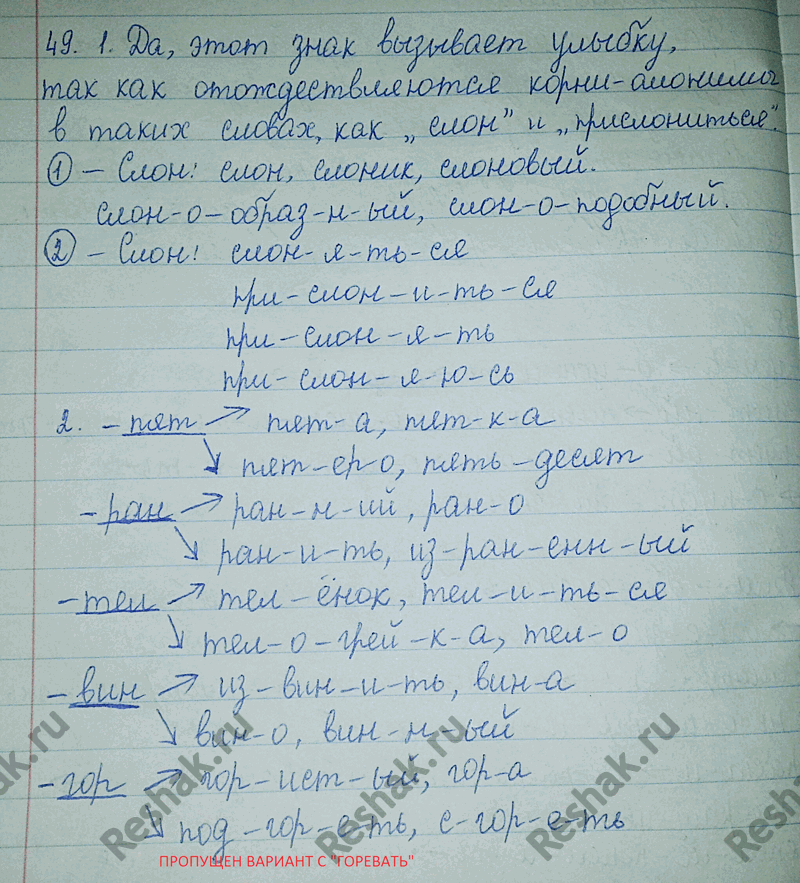 49. 1. Да, этот знак вызывает улыбку,
так как отождествляются корни-омонимы
в таких словах, как „слон" и „прислониться".
① – Слон: слон, слоник, слоновый.
слон-о-образ-н-ый, слон-о-подобный.
② – Слон: слон-я-ть-ся
при-слон-и-ть-ся
при-слон-я-ть
при-слон-я-ю-сь
2. -пят → пят-а, пят-к-а
↘ пят-ер-о, пять-десят
-ран → ран-н-ий, ран-о
↘ ран-и-ть, из-ран-енн-ый
-тел → тел-ёнок, тел-и-ть-ся
↘ тел-о-грей-к-а, тел-о
-вин → из-вин-и-ть, вин-а
↘ вин-о, вин-н-ый
-гор → гор-ист-ый, гор-а
↘ под-гор-е-ть, с-гор-е-ть
ПРОПУЩЕН ВАРИАНТ С "ГОРЕВАТЬ"
Reshak.ru
Reshak.ru
Reshak.ru